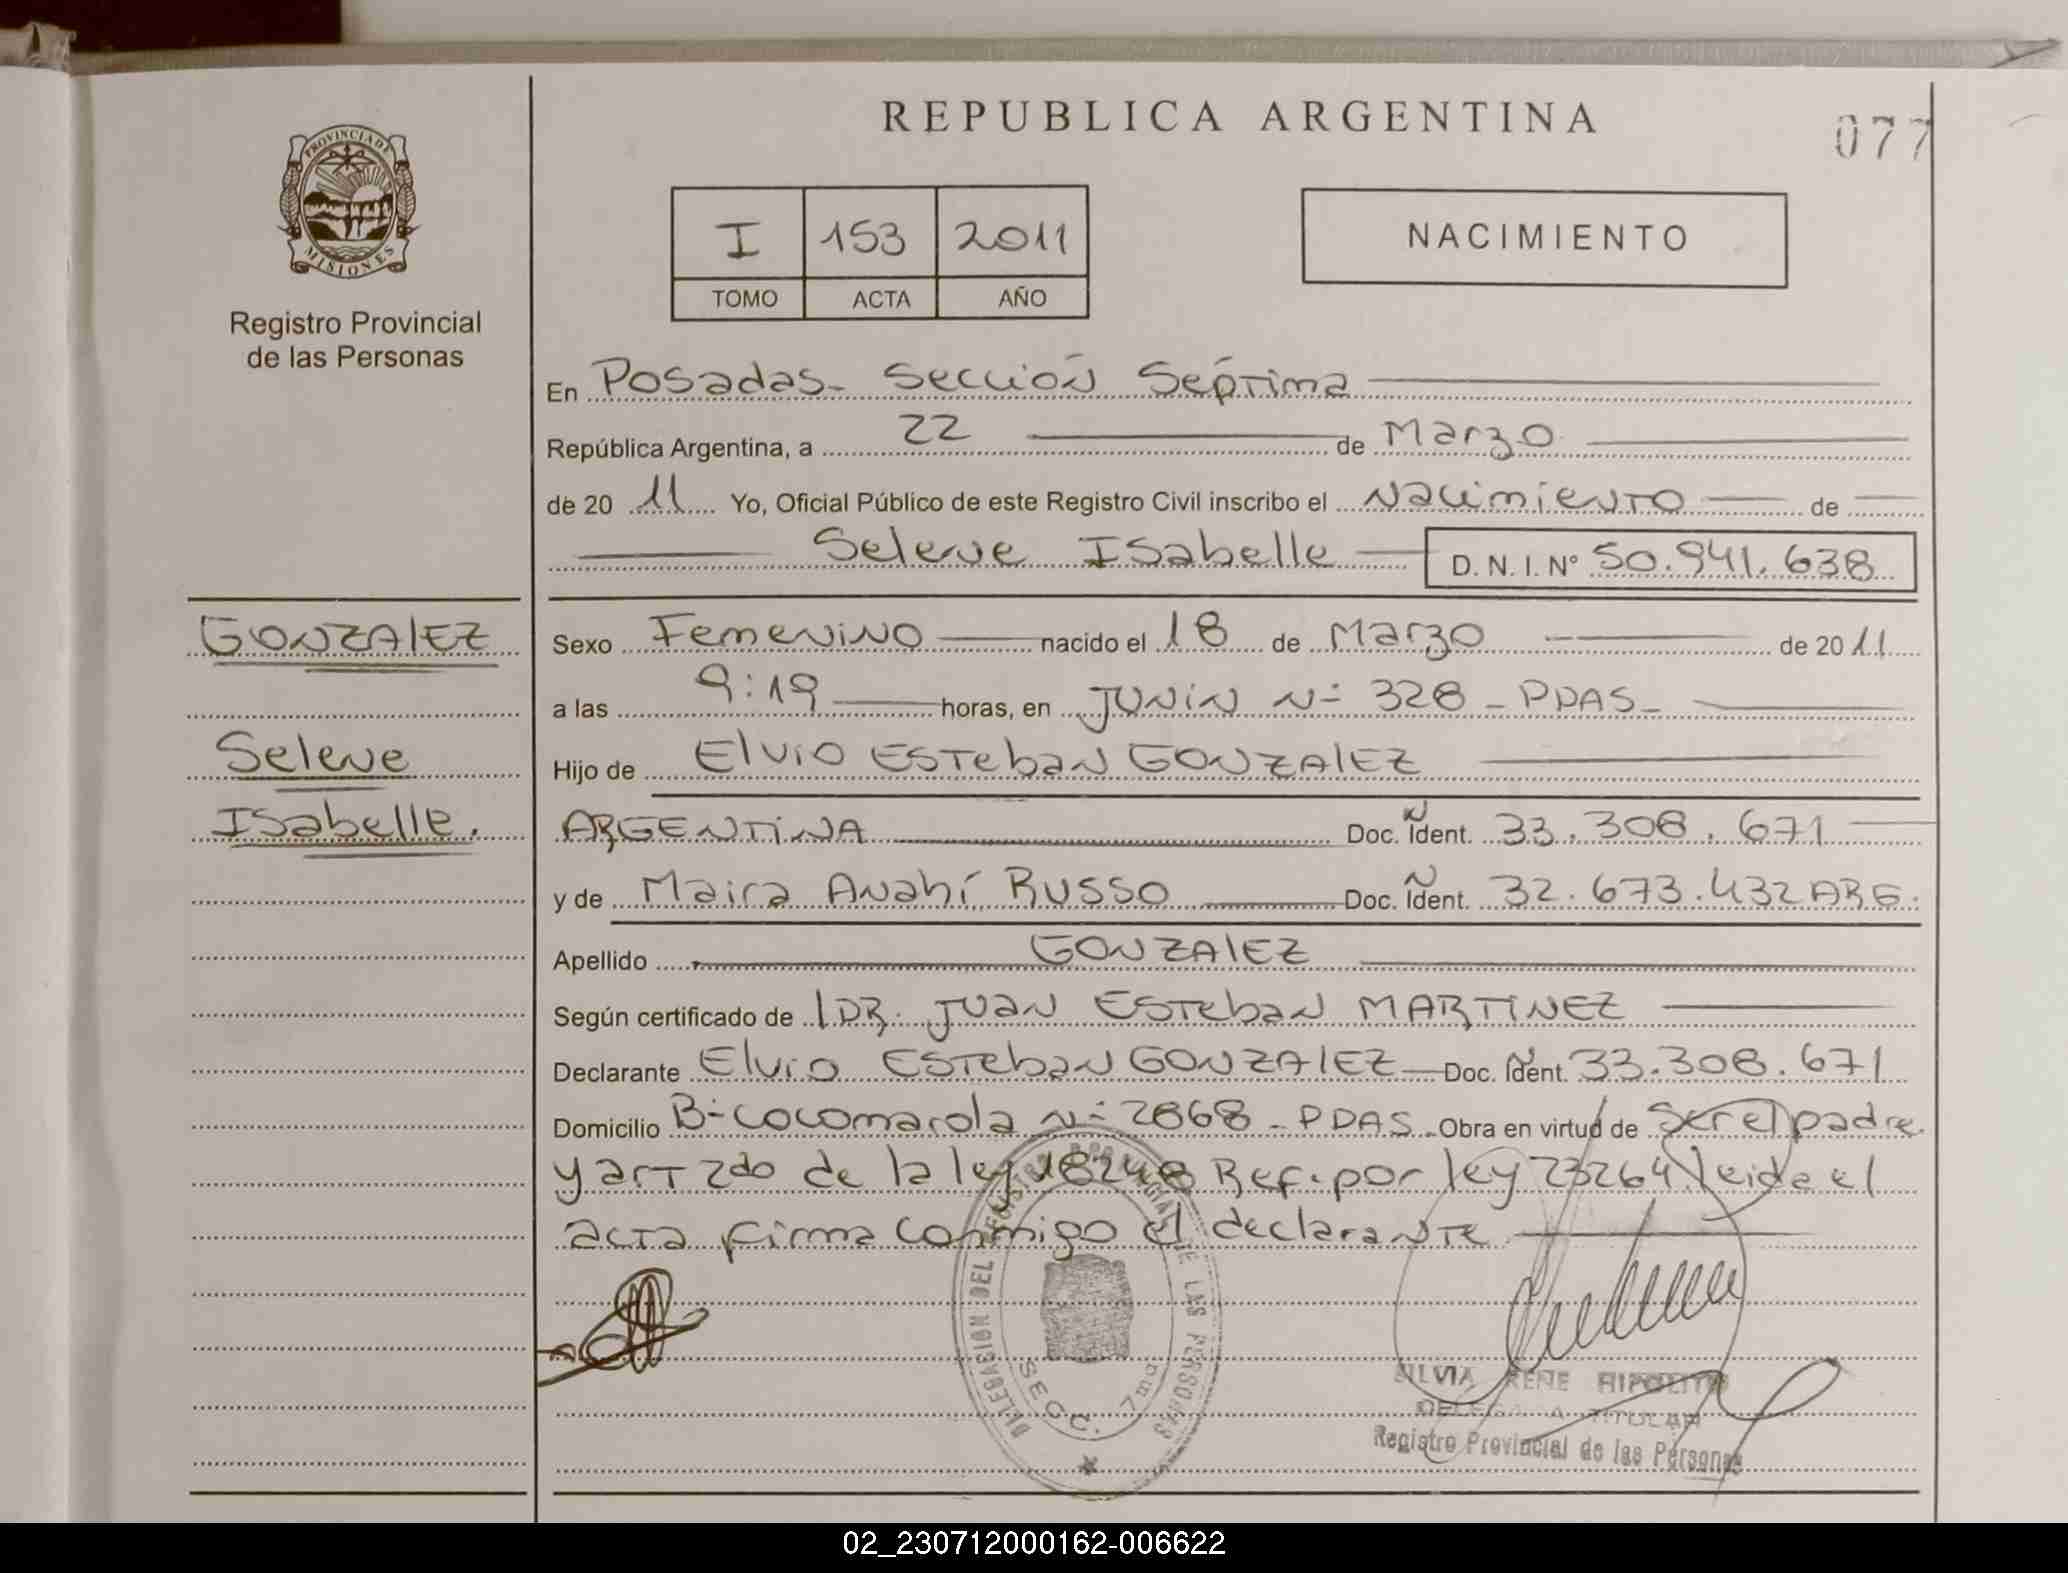 REPUBLICA ARGENTINA
077
PROVINCIA DE
MISIONES
Registro Provincial
de las Personas
I 153 2011
TOMO ACTA AÑO
NACIMIENTO
En Posadas - Sección Séptima
República Argentina, a 22 de Marzo
de 2011 Yo, Oficial Público de este Registro Civil inscribo el Nacimiento de
Selene Isabelle D. N. I. Nº 50.941.638
GONZALEZ
Selene
Isabelle.
Sexo Femenino nacido el 18 de Marzo de 2011
a las 9:19 horas, en JUNIN Nº 328 - PDAS -
Hijo de Elvio Esteban GONZALEZ
ARGENTINA Doc. Ñ Ident. 33.308.671
y de Maira Anahí RUSSO Doc. Ñ Ident. 32.673.432 ARG.
Apellido GONZALEZ
Según certificado de DR. JUAN ESTEBAN MARTINEZ
Declarante Elvio Esteban GONZALEZ Doc. Ñ Ident. 33.308.671
Domicilio Bº Cocomarola Nº 2868 - PDAS Obra en virtud de ser el padre
y art 2do de la ley 18248 Ref. por ley 23264. leida el
acta firma conmigo el declarante
DELEGACION DEL REGISTRO PROVINCIAL DE LAS PERSONAS
SECC. 7ma
SILVIA RENE HIPOLITO
DELEGADA TITULAR
Registro Provincial de las Personas
02_230712000162-006622